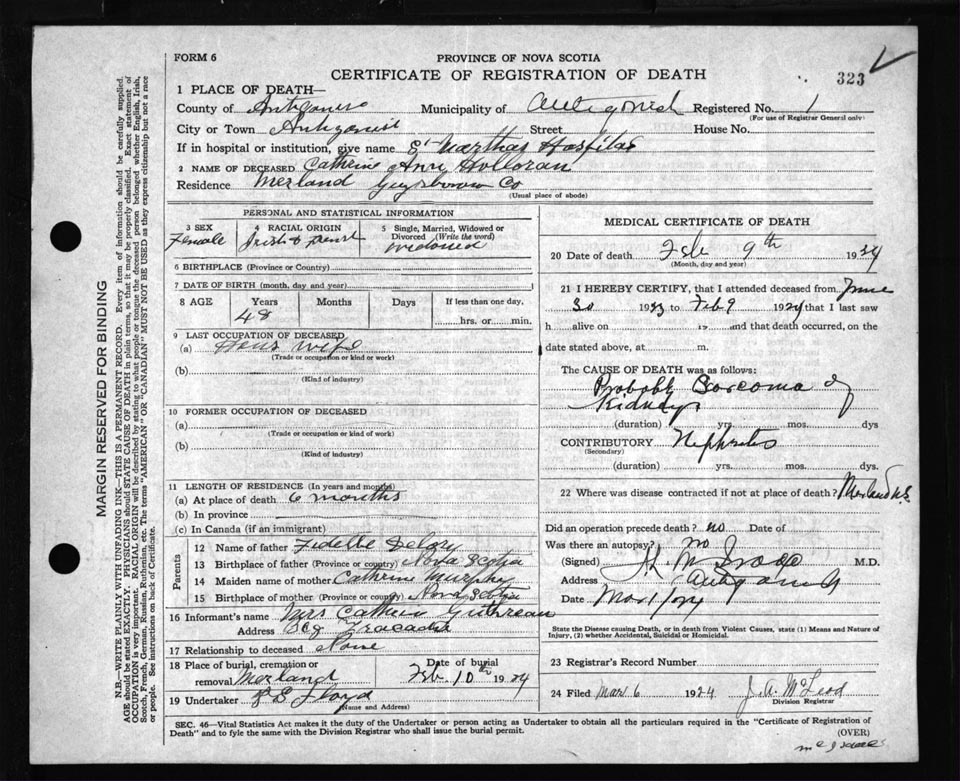 FORM 6
PROVINCE OF NOVA SCOTIA
CERTIFICATE OF REGISTRATION OF DEATH
323
1 PLACE OF DEATH—
County of Antigonish Municipality of Antigonish Registered No. 1
(For use of Registrar General only)
City or Town Antigonish Street House No.
If in hospital or institution, give name St Marthas Hospital
2 NAME OF DECEASED Catherine Ann Holloran
Residence Merland Guysborow Co
(Usual place of abode)
PERSONAL AND STATISTICAL INFORMATION
3 SEX Female
4 RACIAL ORIGIN Irish &
5 Single, Married, Widowed or Divorced (Write the word) widowed
6 BIRTHPLACE (Province or Country)
7 DATE OF BIRTH (month, day, and year)
8 AGE Years Months Days If less than one day,
48 hrs. or min.
9 LAST OCCUPATION OF DECEASED
(a) Hous wife
(Trade or occupation or kind or work)
(b)
(Kind of industry)
10 FORMER OCCUPATION OF DECEASED
(a)
(Trade or occupation or kind of work)
(b)
(Kind of industry)
11 LENGTH OF RESIDENCE (In years and months)
(a) At place of death 6 months
(b) In province
(c) In Canada (if an immigrant)
Parents
12 Name of father Fidelle Delory
13 Birthplace of father (Province or country) Nova Scotia
14 Maiden name of mother Catherine Murphy
15 Birthplace of mother (Province or country) Nova Scotia
16 Informant's name Mrs Cathern Guthreau
Address Tracadie
17 Relationship to deceased None
18 Place of burial, cremation or removal Merland
Date of burial Feb 10th 1924
19 Undertaker Floyd
(Name and Address)
MEDICAL CERTIFICATE OF DEATH
20 Date of death Feb 9th 1924
(Month, day and year)
21 I HEREBY CERTIFY, that I attended deceased from June
30 1923 to Feb 9 1924 that I last saw
h alive on 19 and that death occurred, on the
date stated above, at m.
The CAUSE OF DEATH was as follows:
Probably Sarcoma of
Kidneys
(duration) yrs. mos. dys
CONTRIBUTORY Nephritis
(Secondary)
(duration) yrs. mos. dys.
22 Where was disease contracted if not at place of death? Merland N.S
Did an operation precede death? no Date of
Was there an autopsy? no
(Signed) M.D.
Address Antigonish
Date Mar 1/24
State the Disease causing Death, or in death from Violent Causes, state (1) Means and Nature of
Injury, (2) whether Accidental, Suicidal or Homicidal.
23 Registrar's Record Number
24 Filed Mar 6 1924 J. A. McLeod
Division Registrar
SEC. 46—Vital Statistics Act makes it the duty of the Undertaker or person acting as Undertaker to obtain all the particulars required in the "Certificate of Registration of
Death" and to fyle the same with the Division Registrar who shall issue the burial permit.
(OVER)
MARGIN RESERVED FOR BINDING
N.B.—WRITE PLAINLY WITH UNFADING INK—THIS IS A PERMANENT RECORD. Every item of information should be carefully supplied.
AGE should be stated EXACTLY. PHYSICIANS should STATE CAUSE OF DEATH in plain terms, so that it may be properly classified. Exact statement of
OCCUPATION is very important. RACIAL ORIGIN will be described by stating to what people or tongue the deceased person belonged whether English, Irish,
Scotch, French, German, Russian, Ruthenian, etc. The terms "AMERICAN" OR "CANADIAN" MUST NOT BE USED as they express citizenship but not a race
or people. See instructions on back of Certificate.